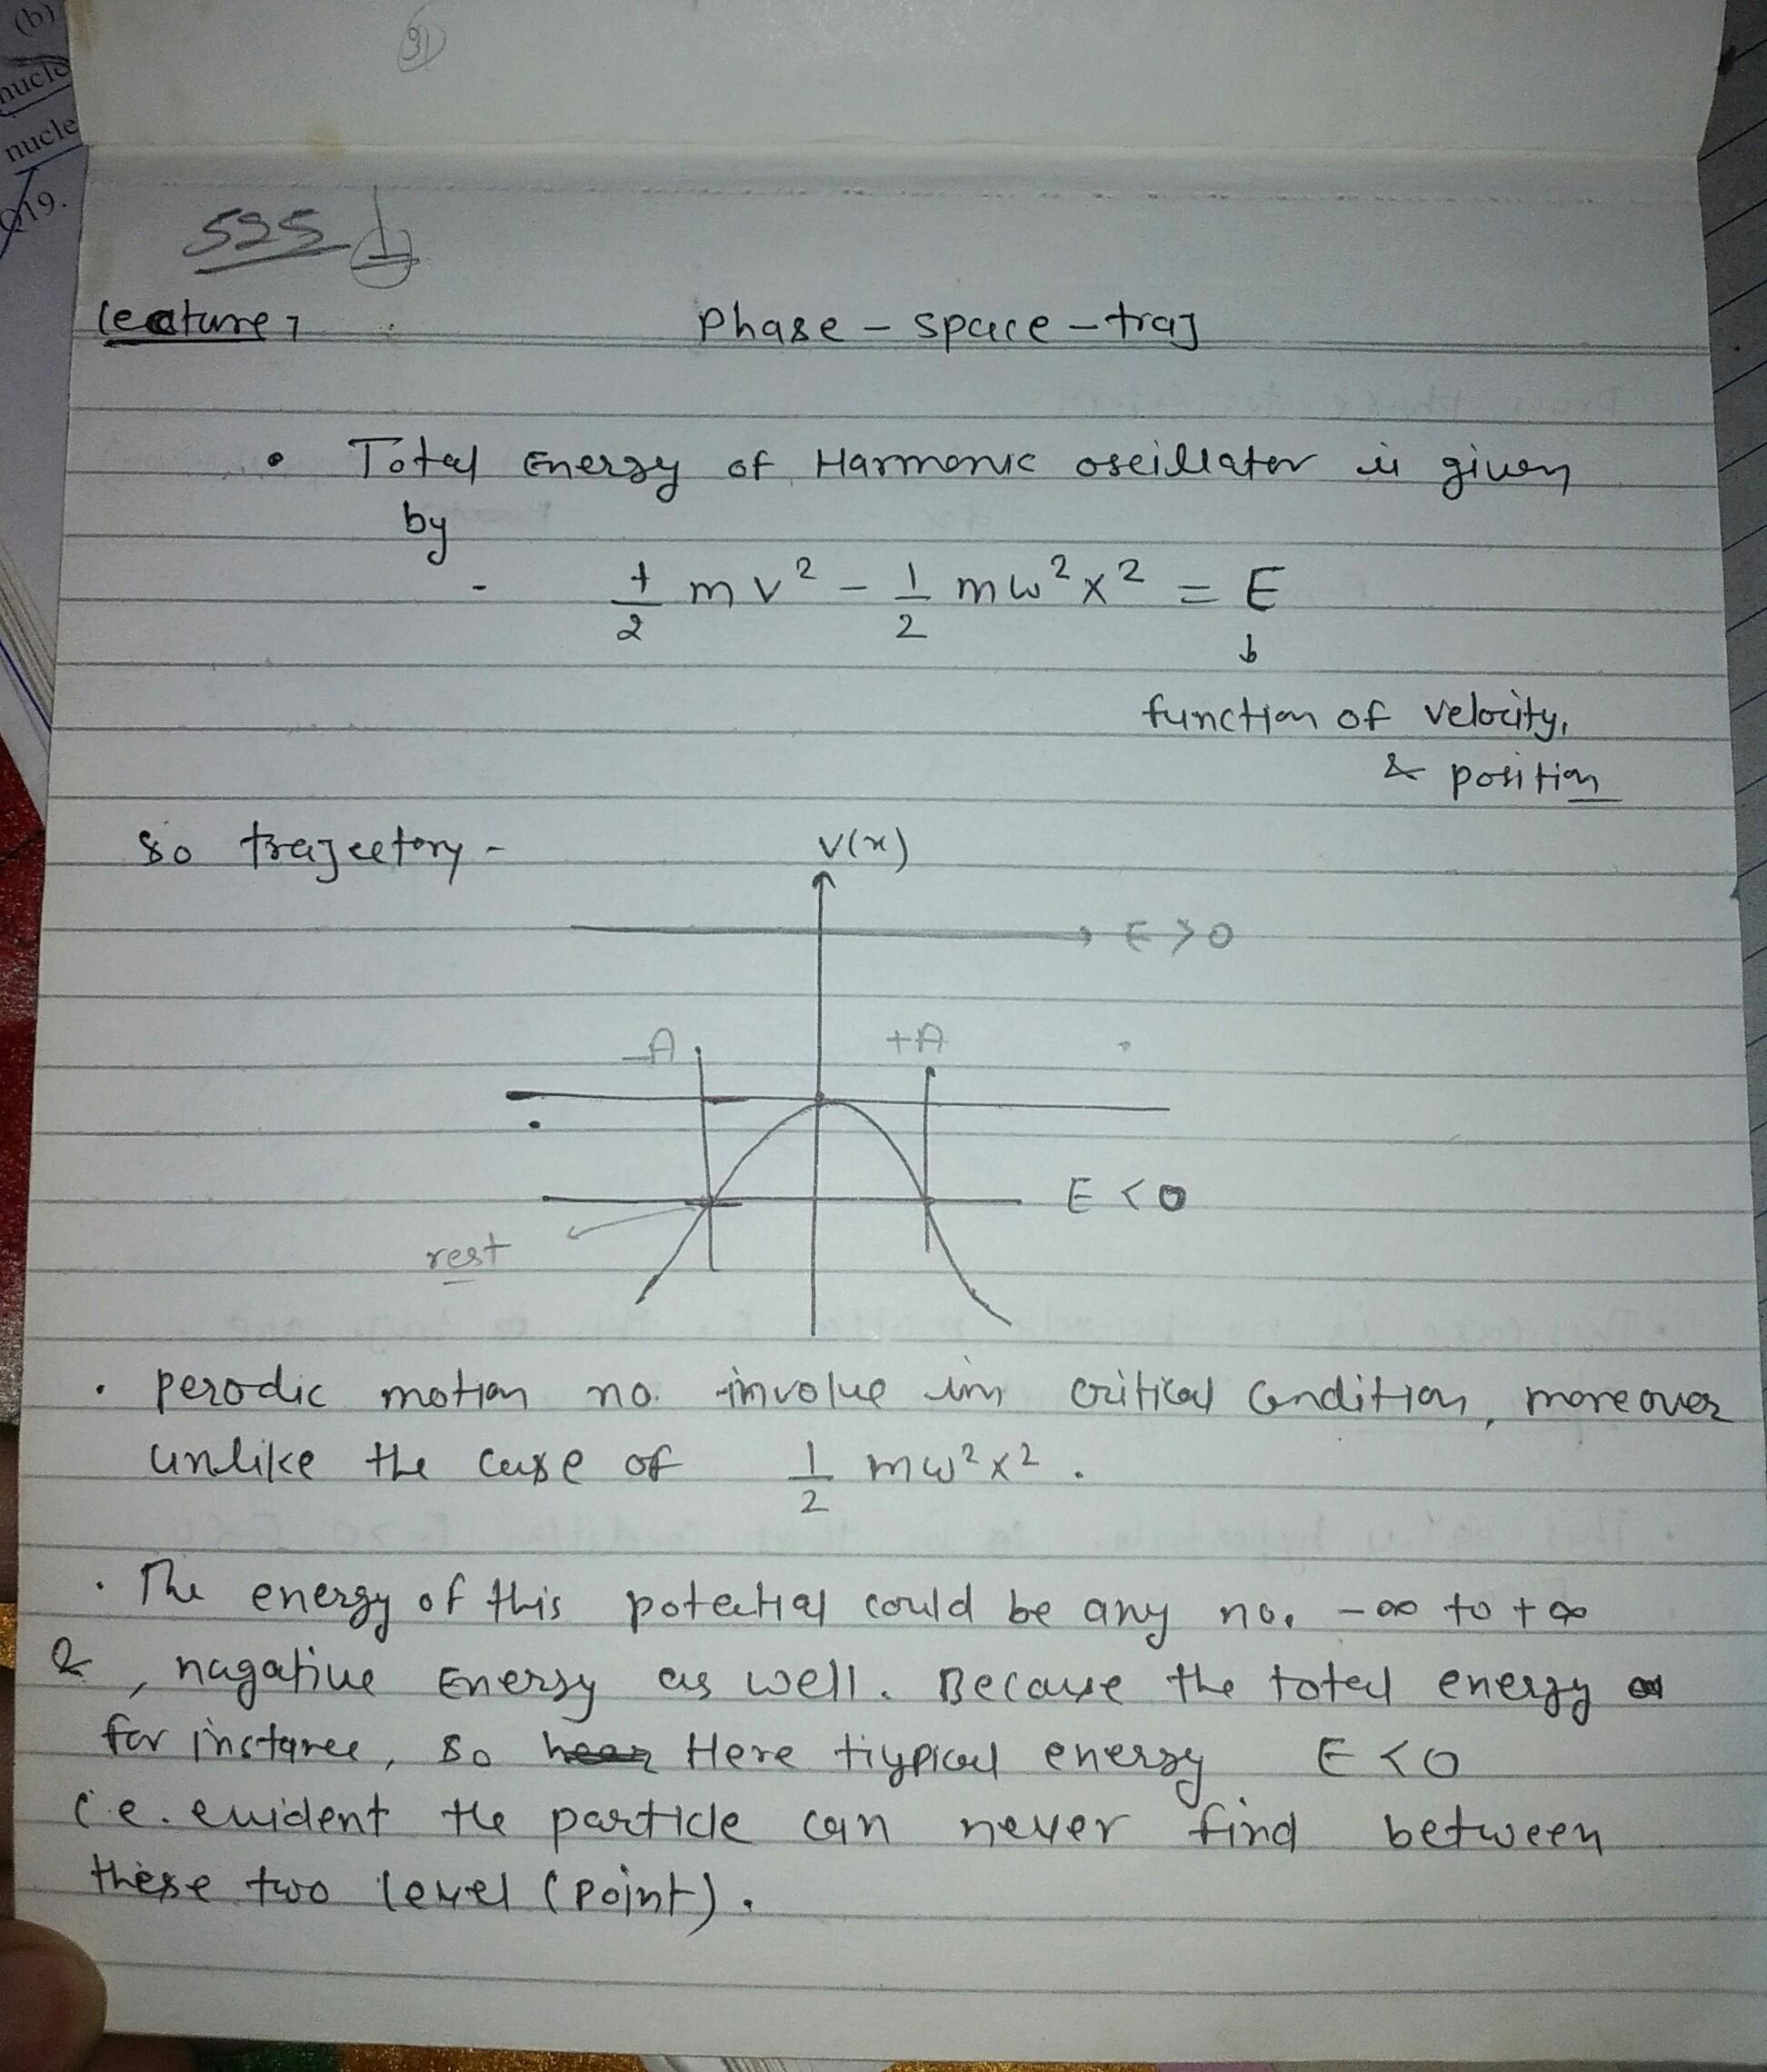 (b)
nucle
nucle
Q19.
31
525 1
Lecture 7 Phase - space - traj
• Total Energy of Harmonic oscillator is given
by
- 1/2 mv² - 1/2 mω²x² = E
↓
function of velocity,
& position
So trajectory - V(x)
E > 0
-A +A
E < 0
rest
• perodic motion no. involve in critical condition, moreover
unlike the case of 1/2 mω²x².
• The energy of this potential could be any no. -∞ to +∞
& , nagative Energy as well. Because the total energy
for instance, so Here tiypical energy E < 0
i.e. evident the particle can never find between
these two level (point).